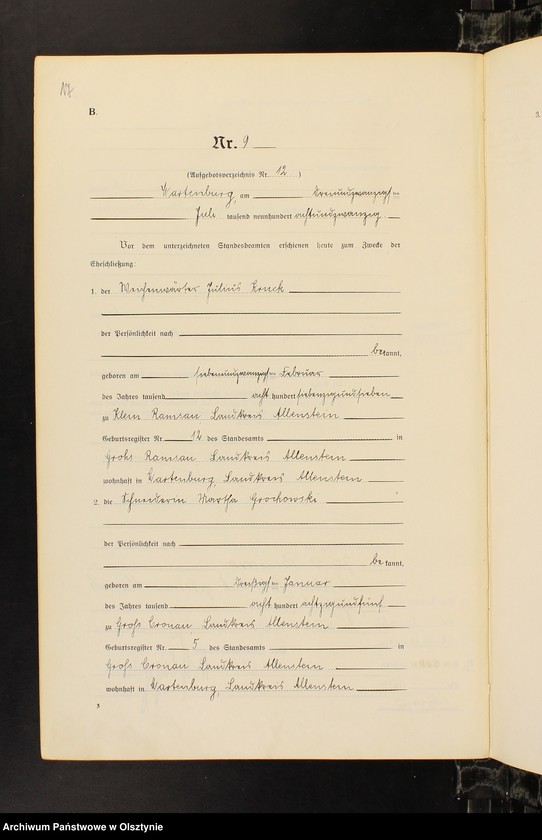 17
B.
Nr. 9
(Aufgebotsverzeichnis Nr. 12 )
Wartenburg, am dreiundzwanzigsten
Juli tausend neunhundert achtundzwanzig
Vor dem unterzeichneten Standesbeamten erschienen heute zum Zwecke der
Eheschließung:
1. der Weichenwärter Julius Kruck
der Persönlichkeit nach
bekannt,
geboren am siebenundzwanzigsten Februar
des Jahres tausend acht hundert siebenzigundsieben
zu Klein Ramsau Landkreis Allenstein
Geburtsregister Nr. 12 des Standesamts in
Groß Ramsau Landkreis Allenstein
wohnhaft in Wartenburg, Landkreis Allenstein
2. die Schneiderin Martha Grochowski
der Persönlichkeit nach
bekannt,
geboren am dreißigsten Januar
des Jahres tausend acht hundert achtzigundfünf
zu Groß Cronau Landkreis Allenstein
Geburtsregister Nr. 5 des Standesamts in
Groß Cronau Landkreis Allenstein
wohnhaft in Wartenburg, Landkreis Allenstein
3
Archiwum Państwowe w Olsztynie